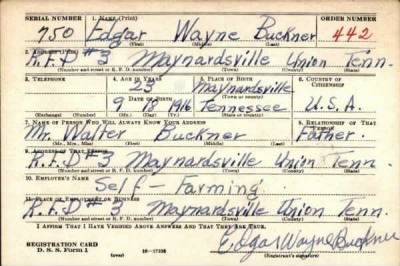 SERIAL NUMBER 1. NAME (Print) ORDER NUMBER
750 Edgar Wayne Buckner 442
(First) (Middle) (Last)
2. ADDRESS (Print)
R.F.D #3 Maynardsville Union Tenn.
(Number and street or R. F. D. number) (Town) (County) (State)
3. TELEPHONE 4. AGE IN YEARS 5. PLACE OF BIRTH 6. COUNTRY OF CITIZENSHIP
23 Maynardsville
DATE OF BIRTH (Town or county)
9 18 1916 Tennessee U.S.A.
(Exchange) (Number) (Mo.) (Day) (Yr.) (State or country)
7. NAME OF PERSON WHO WILL ALWAYS KNOW YOUR ADDRESS 8. RELATIONSHIP OF THAT PERSON
Mr. Walter Buckner Father.
(Mr., Mrs., Miss) (First) (Middle) (Last)
9. ADDRESS OF THAT PERSON
R.F.D #3 Maynardsville Union Tenn.
(Number and street or R. F. D. number) (Town) (County) (State)
10. EMPLOYER'S NAME
Self - Farming
11. PLACE OF EMPLOYMENT OR BUSINESS
R.F.D #3 Maynardsville Union Tenn.
(Number and street or R. F. D. number) (Town) (County) (State)
I AFFIRM THAT I HAVE VERIFIED ABOVE ANSWERS AND THAT THEY ARE TRUE.
REGISTRATION CARD
D. S. S. Form 1 (over) Edgar Wayne Buckner
(Registrant's signature)